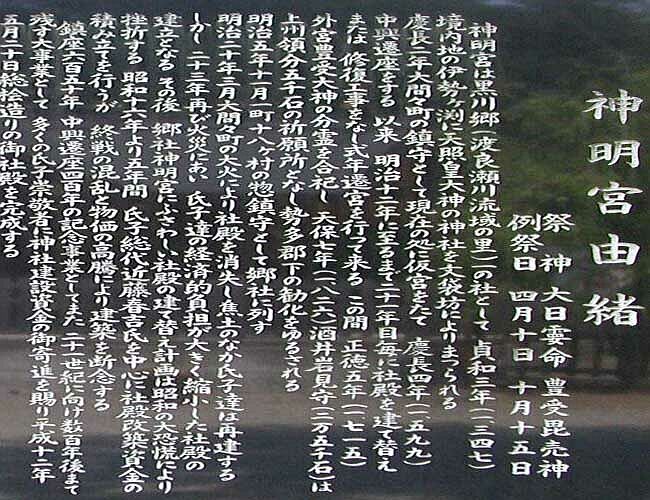 神明宮由緒
祭神 大日孁命 豊受毘売神
例祭日 四月十日 十月十五日
神明宮は黒川郷(渡良瀬川流域の里)一の社として 貞和三年(一三四七)
境内地の伊勢ヶ渕に天照皇大神の神社を文袋坊によりまつられる
慶長二年大間々町の鎮守として現在処に仮宮をたて 慶長四年(一五九九)
中興遷座をする 以来 明治十二年に至るまで二十一年目毎に社殿を建て替え
または 修復工事をなし式年遷宮を行って来る この間 正徳五年(一七一五)
外宮豊受大神の分霊を合祀し 天保七年(一八三六)酒井石見守(二万五千石)は
上州領分五千石の祈願所となし勢多郡下の勧化をゆるされる
明治五年十一月一町十八ヶ村の惣鎮守として郷社に列す
明治二十年三月大間々町の大火により社殿を消失し焦土のなか氏子達は再建する
しかし 二十三年再び火災にあい 氏子達の経済的負担が大きく縮小した社殿の
建立となる その後 郷社神明宮にふさわしい社殿の建て替え計画は昭和の大恐慌により
挫折する 昭和十六年より五年間 氏子総代近藤春吉氏を中心に社殿改築資金の
積み立てを行うが 終戦の混乱と物価の高騰により建築を断念する
鎮座六百五十年 中興遷座四百年の記念事業としてまた 二十一世紀に向け数百年後まで
残す大事業として 多くの氏子崇敬者に神社建設資金の御寄進を賜り平成十二年
五月二十日総桧造りの御社殿を完成する